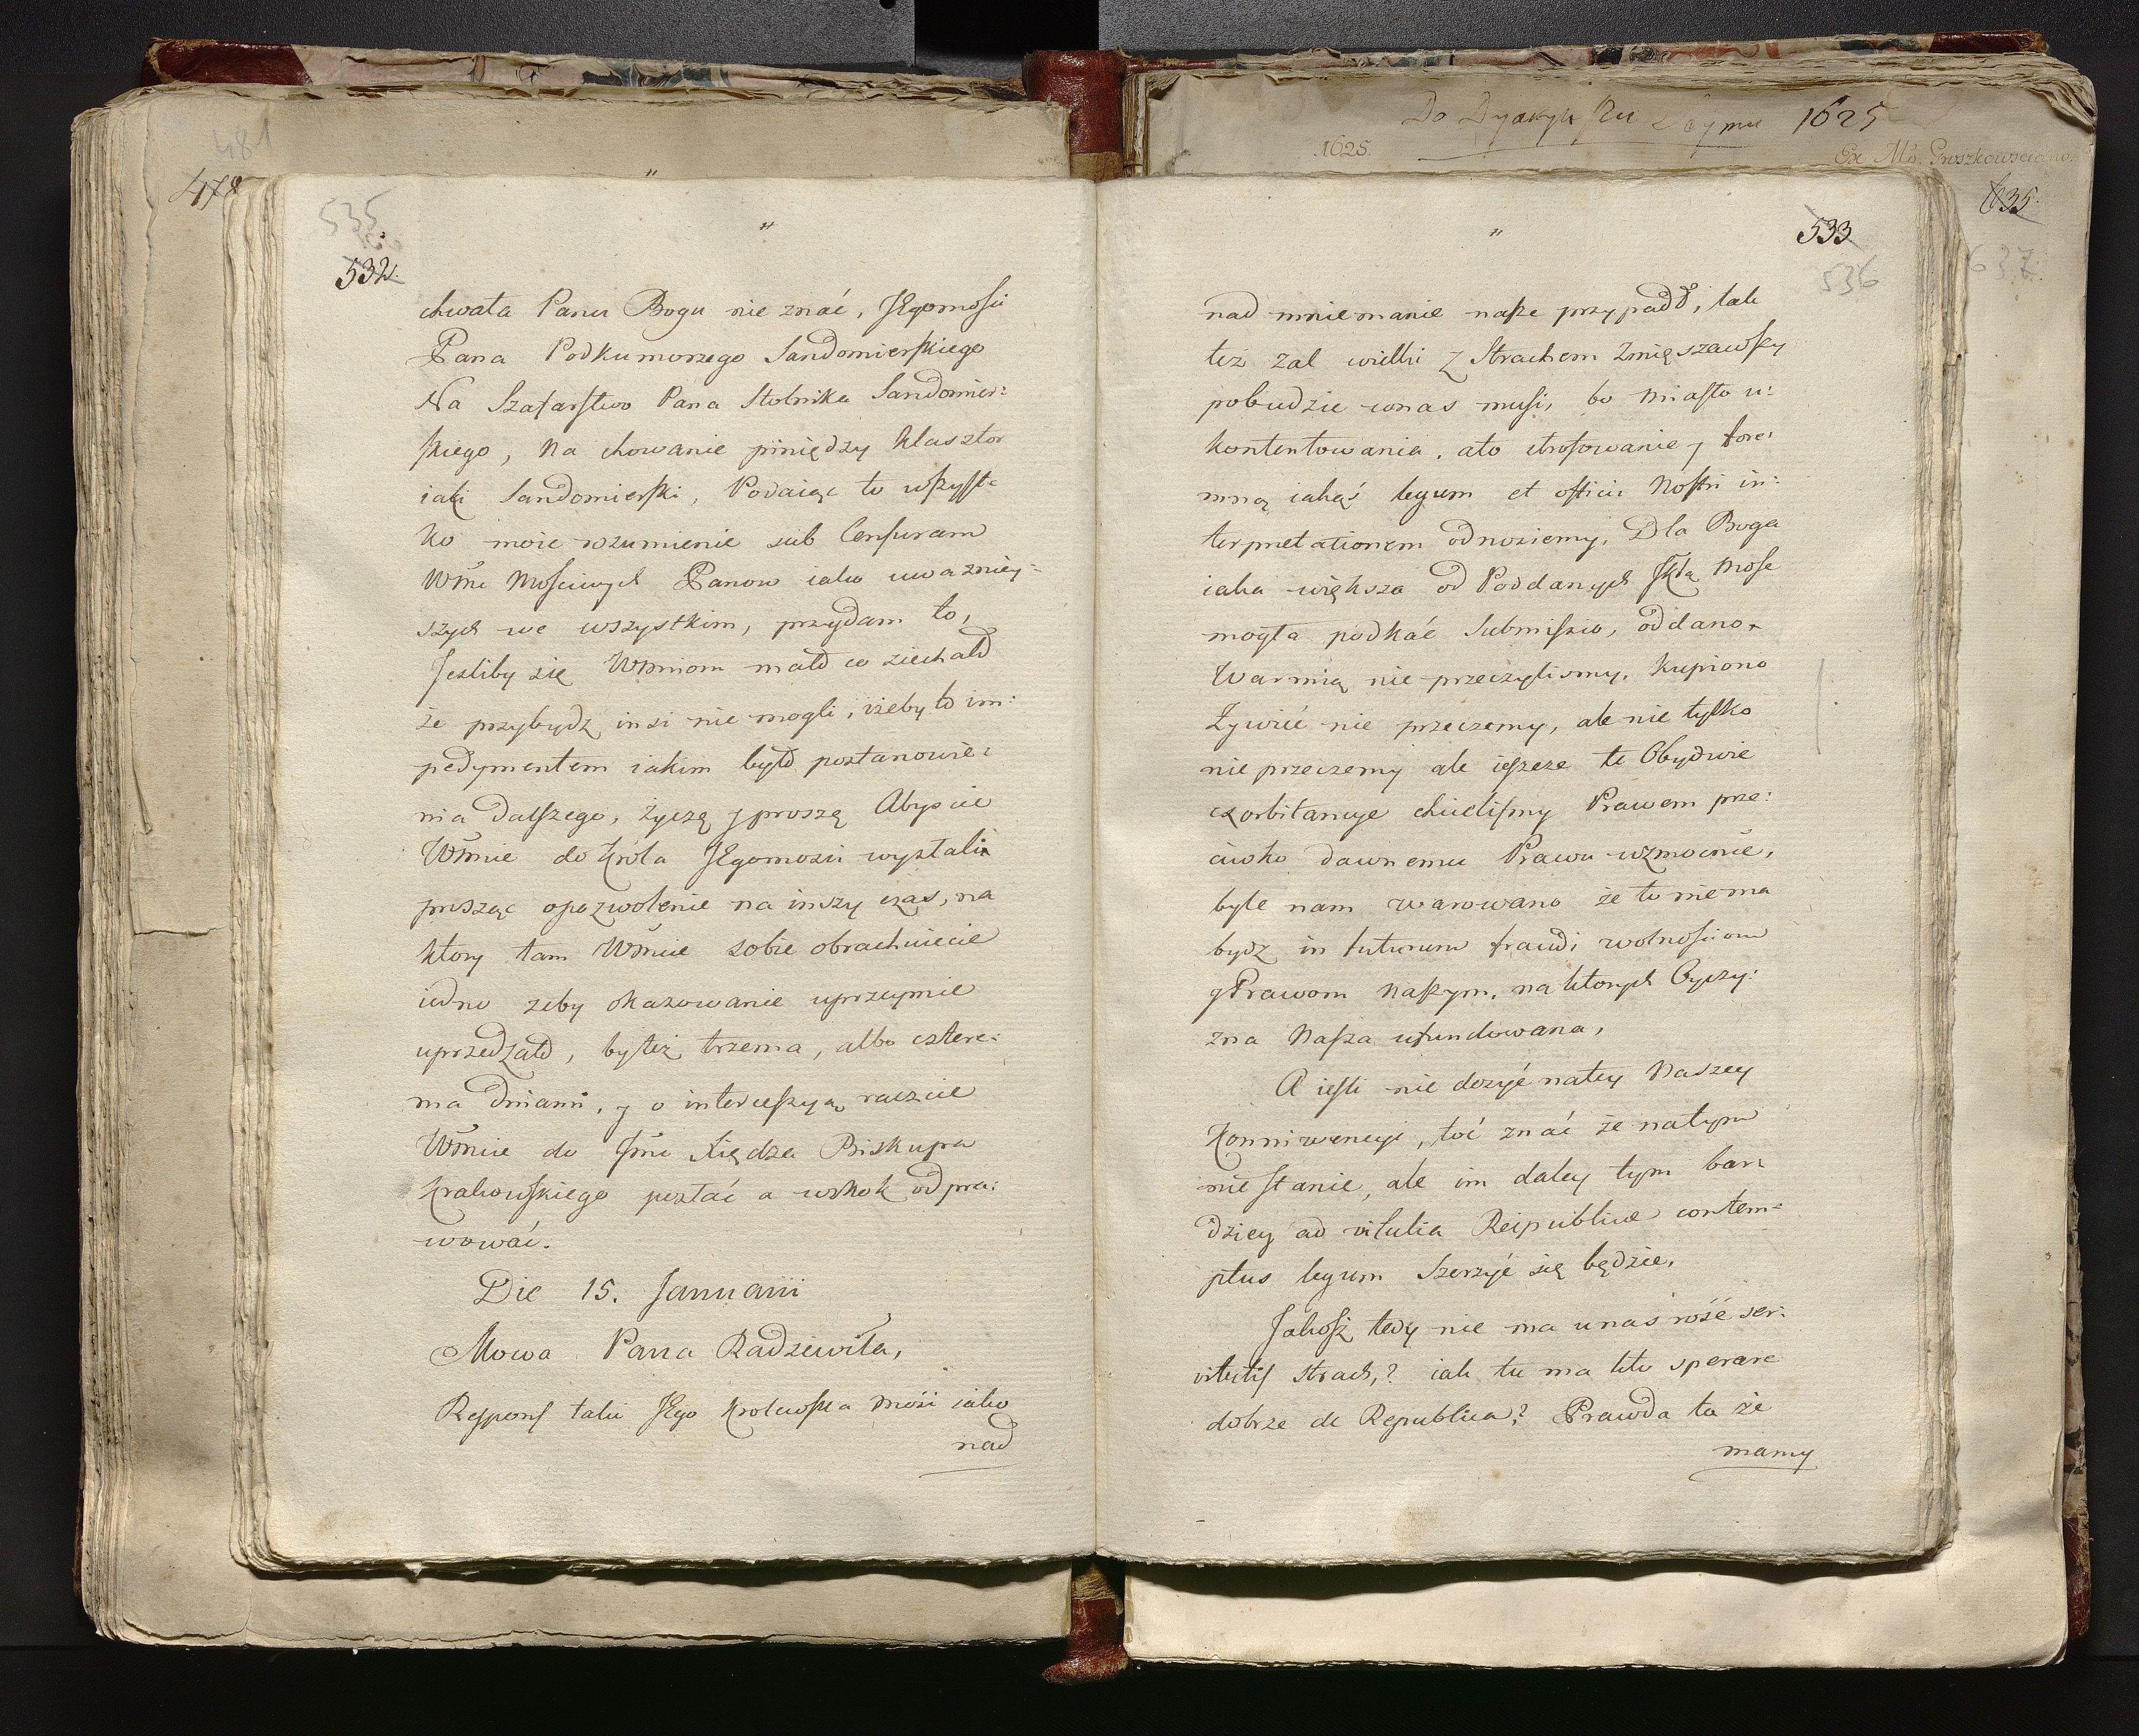 481
478
"
535
532.
"
chwała Panu Bogu nie znać, JEgomości
Pana Podkumorzego Sandomierskiego
Na Szafarstwo Pana Stolnika Sandomier:
skiego, na chowanie piniędzy klasztor
iaki Sandomierski, Podaiąc to wszyst:
ko moie rozumienie sub Censuram
Wmć Mościwych Panow iako uważniey:
szych we wszystkim, przydam to,
Jesliby się Wmciom mało co ziechało
że przybydź insi nie mogli, iżeby to im:
pedymentem iakim było postanowie:
nia dalszego, życzę y proszę Abyscie
Wmcie do Króla JEgomosci wysłali
prosząc opozwolenie na inszy czas, na
ktory tam Wmcie sobie obrachuiecie
iedno zeby okazowanie uprzeymie
uprzedzało, byteż trzema, albo cztere:
ma dniami, y o intercessyą raczcie
Wmcie do Jmci Xiędza Biskupa
Krakowskiego posłać a wskok odpra:
wować.
Die 15. Januarii
Mowa Pana Radziwiła,
Respons taki JEgo Krolewska Mości iako
nad
Do Dyaryuszu Seymu 1625
1625.
Ex Ms. Proszkowsciano.
635.
637.
"
533
536
nad mniemanie nasze przypadł, tak
też żal wielki z Strachem zmięszawszy
pobudzić wnas musi, bo miasto u:
kontentowania, ato strofowanie y fore:
mną iakąś legum et officii Nostri in:
terpretationem odnosiemy, Dla Boga
iaka większa od Poddanych JKtą Mose
mogła podkać Submissio, oddano
Warmią nie przeczylismy, kupiono
Żywiec nie przeczemy, ale nie tylko
nie przeczemy ale ieszcze te Obydwie
exorbitancye chcielismy Prawem prze:
ciwko dawnemu Prawu wzmocnić,
byle nam warowano że to niema
bydz in futurum fraudi wolnościom
y Prawom Naszym, na ktorych Oyczy:
zna Nasza ufundowana,
A iesli nie dozyć natey Naszey
Konniwencyi, toć znać że natym
nie stanie, ale im daley tym bar:
dziey ad vilulia Reipublice contem:
ptus legum Szerzyć się będzie.
Jakosz tedy nie ma unas rość ser:
vitutis strach,? iak tu ma kto sperare
dobrze de Republica? Prawda ta że
mamy